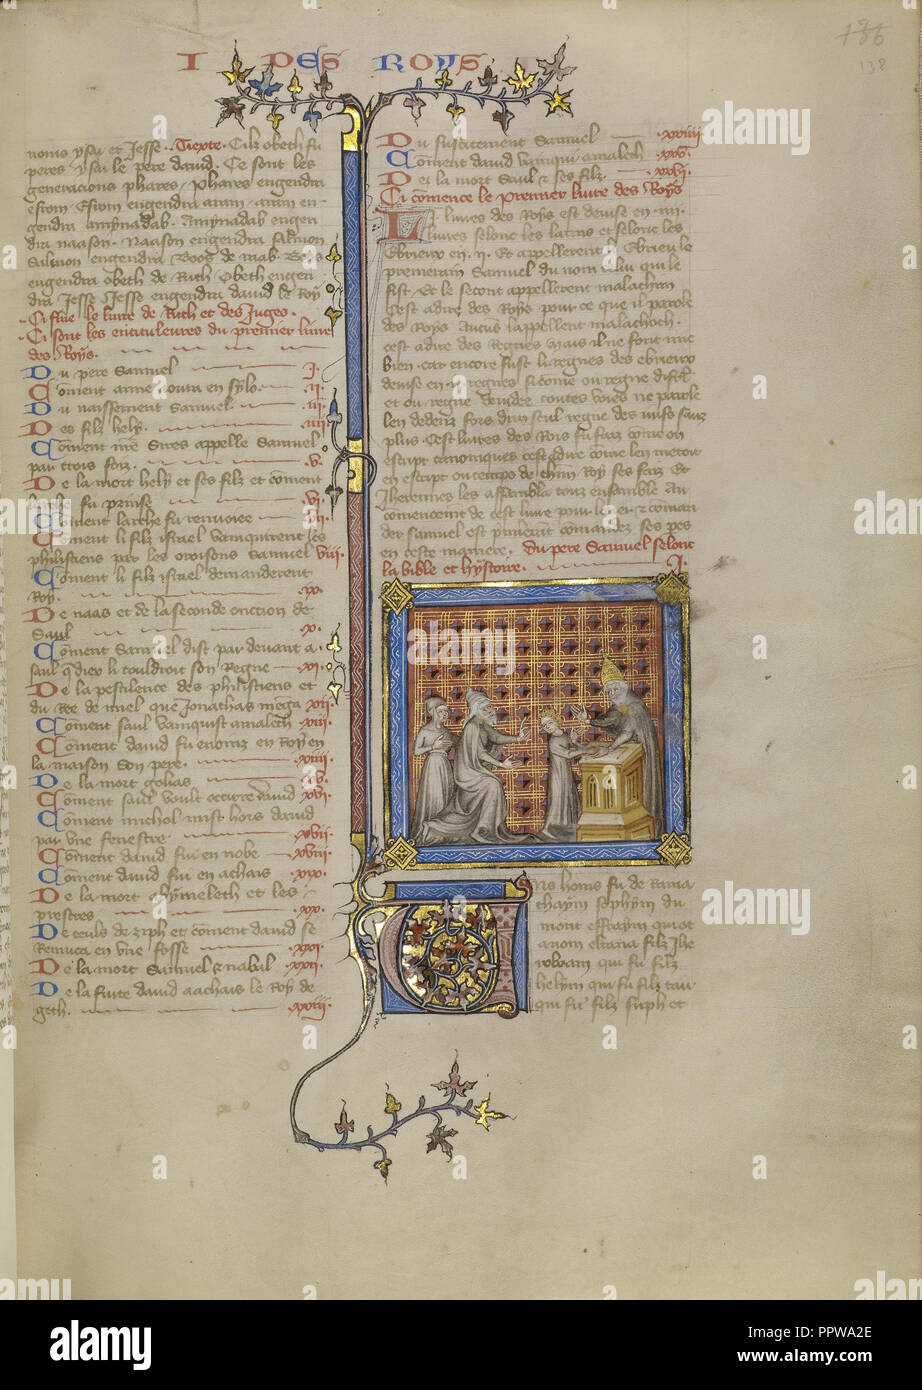 I DES ROYS
136
138
noms ysay et Jesse. Texte. Cilz obeth fu
peres ysai le pere david. Ce sont les
generacions phares. Phares engendra
esrom. Esrom engendra aram. aram en-
gendra amynadab. Amynadab engen
dra naason. Naason engendra salmon
Salmon engendra Booz de raab. Boos
engendra obeth de Ruth. Obeth engen-
dra Jesse. Jesse engendra david le Roy
Ci fine le livre de Ruth et des Juges.
Ci sont les entituleures du premier livre
des Roys.
Du pere Samuel .I.
Coment anne en sylo .II.
Du naissement Samuel .III.
Des filz hely .IIII.
Coment nre Sires appelle Samuel
par trois foiz .V.
De la mort hely et ses filz et coment
larche fu prinse .VI.
Coment larche fu renvoiee .VII.
Coment li filz israel vainquirent les
philistiens par les oroisons Samuel VIII.
Coment li filz israel demanderent
Roy .IX.
De naas et de la seconde onction de
Saul .X.
Coment Samuel dist par devant a
saul q dieu li touldroit son Regne .XI.
De la pestilence des philistiens et
du Ree de miel que Jonathas menga .XII.
Coment saul vainquist amalech .XIII.
Coment david fu enoinz en Roy en
la maison son pere .XIIII.
De la mort golias .XV.
Coment saul voult occirre david .XVI.
Coment michol mist hors david
par une fenestre .XVII.
Coment david fui en nobe .XVIII.
Coment david fui en achais .XIX.
De la mort Abymelech et les
prestres .XX.
De ceuls de ziph et coment david se
Remuca en une fosse .XXI.
De la mort Samuel & nabal .XXII.
De la fuite david a achais le Roy de
geth .XXIII.
Du suscitement Samuel .XXIIII.
Coment david vainqui amalech .XXV.
De la mort Saul & ses filz .XXVI.
Ci comence le premier livre des Roys
Li livres des Roys est devise en .IIII.
livres selonc les latins et selonc les
Ebrieux en .II. Et appellerent li Ebrieu le
premerain Samuel du nom celui qui le
fist. Et le secont appellerent malachim
Cest adire des Roys pour ce que il parole
des Roys. Aucus lappellent malachoth.
cest adire des Regnes mais il ne sont mie
bien. car encore fust li regnes des ebrieux
devise en
et ou regne de iudee toutes voies ne parole
len dedenz fors dun seul regne des iuifs sanz
plus. Cest livres des Rois fu faiz come on
escript canoniques cest adire come len metoit
en escript ou temps de chascun Roy ses faiz. Et
Jheremies les assembla touz ensamble. Au
comencement de cest livre pour loer & comman
der samuel est premierement comandez ses pes
en ceste maniere. Du pere Samuel selonc
la bible et hystoire .I.
Uns homs fu de Rama
thaym sophym du
mont effraym qui ot
a nom elcana filz Jhe
roboam qui fu filz
helyu qui fu filz tau
qui fu filz suph et
alamy stock photo
PPWA2E
www.alamy.com